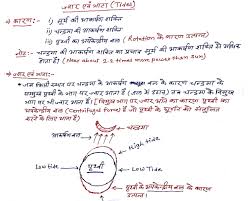 ज्वार एवं भाटा (Tides)
* कारण:- i) सूर्य की आकर्षण शक्ति
ii) चन्द्रमा की आकर्षण शक्ति
iii) पृथ्वी का अपकेन्द्रीय बल (Rotation के कारण उत्पन्न)
नोट:- चन्द्रमा की आकर्षण शक्ति का प्रभाव सूर्य की आकर्षण शक्ति से अधिक
होता है। (Near about 2.2 times more power than Sun)
* ज्वार एवं भाटा:-
जब किसी स्थान पर चन्द्रमा के आकर्षण बल के कारण चन्द्रमा के
सम्मुख पृथ्वी के भाग पर ज्वार आता है
भाग पर भी ज्वार आता है। [विमुख भाग पर ज्वार आने का कारण पृथ्वी का
अपकेन्द्रीय बल (Centrifugal force) है जो पृथ्वी के घूर्णन को संतुलित
करने के लिए होता है]
चन्द्रमा
आकर्षण बल
High tide
Low Tide
पृथ्वी
Low Tide
पृथ्वी के अपकेन्द्रीय बल के कारण
उत्पन्न।